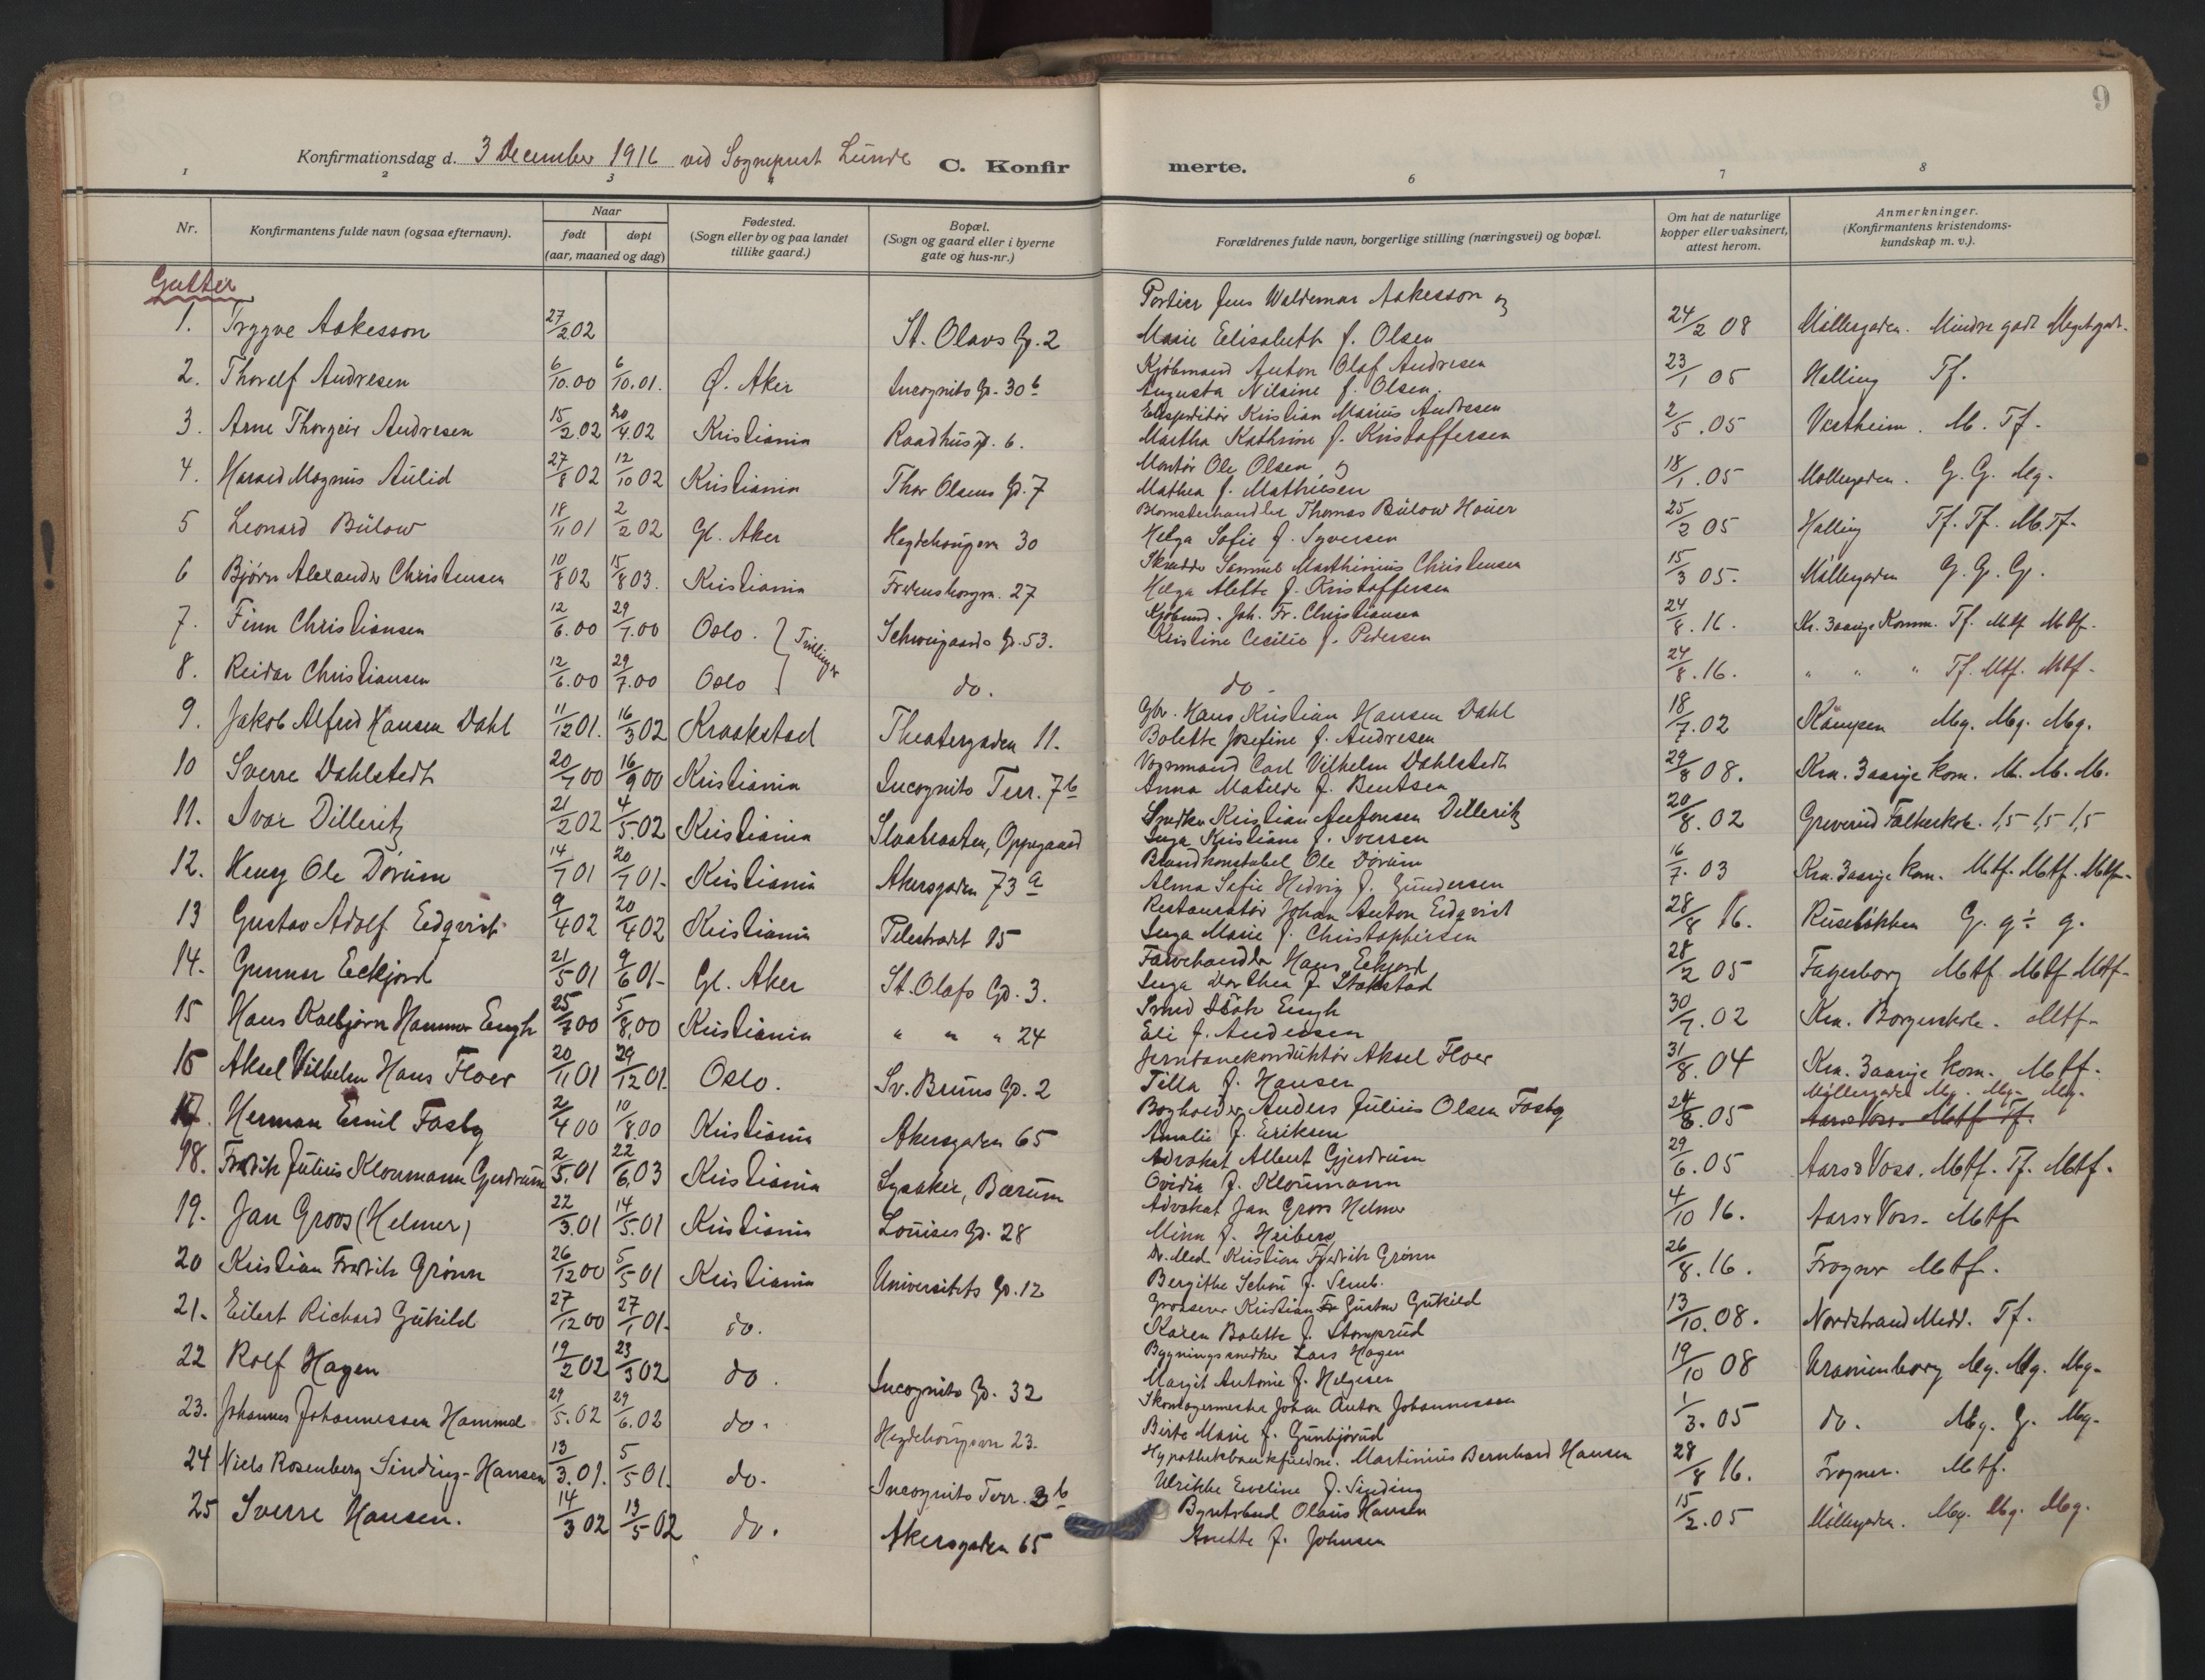 9
Konfirmationsdag d. 3 December 1916 ved Sogneprest Lunde C. Konfirmerte.
1 2 3 6 7 8
Nr. Konfirmantens fulde navn (ogsaa efternavn). Naar født døpt (aar, maaned og dag) Fødested. (Sogn eller by og paa landet tillike gaard.) Bopæl. (Sogn og gaard eller i byerne gate og hus-nr.) Forældrenes fulde navn, borgerlige stilling (næringsvei) og bopæl. Om hat de naturlige kopper eller vaksinert, attest herom. Anmerkninger. (Konfirmantens kristendomskundskap m. v.).
Gutter
1. Trygve Aakesson 27/2 02 St. Olavs Gd. 2 Portier Jens Waldemar Aakesson og 24/2 08 Møllergaden. Mindre godt Meget godt.
Marie Elisabeth f. Olsen
2. Thoralf Andresen 6/10.00 6/10.01. Ø. Aker Incognito Gd. 30 b Kjøbmand Anton Olaf Andresen 23/1 05 Halling Tf.
Augusta Nilsine f. Olsen.
3. Arne Thorgeir Andresen 15/2.02 20/4.02 Kristiania Raadhusgd. 6. Ekspeditør Kristian Marius Andresen 2/5.05 Vestheim. M. Tf.
Martha Kathrine f. Kristoffersen
4. Harald Magnus Aulid 27/8 02 12/10 02 Kristiania Thor Olsens Gd. 7 Montør Ole Olsen og 18/1.05 Møllergaden. G. G. Mg.
Mathea f. Mathiesen
5 Leonard Bülow 18/11 01 2/2 02 Gl. Aker Hegdehaugen 30 Blomsterhandler Thomas Bülow Hauer 25/2 05 Halling Tf. Tf. M. Tf.
Helga Sofie f. Syversen
6 Bjørn Alexander Christensen 10/8 02 15/8 03. Kristiania Fredensborgvn. 27 Skredder Samuel Marthinius Christensen 15/3 05. Møllergaden G. G. G.
Helga Alette f. Kristoffersen
7. Finn Christiansen 12/6.00 29/7.00 Oslo. } Tvillinger Schweigaards Gd. 53. Kjøbmd. Joh. Fr. Christiansen 24/8.16. Kr. 3aarige Komm. Tf. Mtf Mtf.
Kristine Cecilie f. Pedersen
8. Reidar Christiansen 12/6.00 29/7.00 Oslo do. do 24/8.16. " " " Tf. Mtf. Mtf.
9. Jakob Alfred Hansen Dahl 11/12 01. 16/3 02 Kraakstad Theatergaden 11. Gbr. Hans Kristian Hansen Dahl 18/7.02 Kampen Mg. Mg. Mg.
Bolette Josefine f. Andresen
10 Sverre Dahlstedt 20/7 00 16/9 00 Kristiania Incognito Terr. 7 b Vognmand Carl Vilhelm Dahlstedt 29/8 08. Kra. 3aarige kom. M. M. M.
Anna Matilde f. Bentsen
11. Ivar Dilleritz 21/2 02 4/5.02 Kristiania Oppegaard Snedker Kristian Antonsen Dilleritz 20/8.02 Greverud Folkeskole. 1,5 1,5 1,5
Inga Kristiane f. Iversen
12. Henry Ole Dørum 14/7 01 20/7 01. Kristiania Akersgaden 73 a Brandkonstabel Ole Dørum 16/7.03 Kra. 3aarige kom. Mtf. Mtf. Mtf.
Alma Sofie Hedvig f. Gundersen
13 Gustav Adolf Edqvist 9/4 02 20/4 02 Kristiania Pilestrædet 15 Restauratør Johan Anton Edqvist 28/8 16. Ruseløkken G. g÷ g.
Inga Marie f. Christophersen
14. Gunnar Eckjord 21/5 01 9/6 01. Gl. Aker St. Olafs Gd. 3. Farvehandler Hans Eckjord 28/2 05 Fagerborg Mtf. Mtf Mtf.
Inga Dorthea f. Stokstad
15 Hans Kolbjørn Hammer Engh 25/7 00 5/8.00 Kristiania " " " 24 Smed Engh 30/7.02 Kra. Borgerskole. Mtf.
Eli f. Andersen
16 Aksel Vilhelm Hans Floer 20/11 01 29/12 01. Oslo. Sv. Bruns Gd. 2 Jernbanekonduktør Aksel Floer 31/8.04 Kra. 3aarige kom. Mtf.
Tilla f. Hansen Møllergaden Mg. Mg. Mg.
17. Herman Emil Fosby 2/4 00 10/8.00 Kristiania Akersgaden 65 Bogholder Anders Julius Olsen Fosby 24/8.05 Aars & Voss. Mtf. Tf.
Amalie f. Eriksen
18. Fredrik Julius Kloumann Gjerdrum 2/5.01 22/6.03 Kristiania Lysaker, Bærum Advokat Albert Gjerdrum 29/6.05 Aars & Voss. Mtf. Tf. Mtf.
Ovidia f. Kloumann
19. Jan Groos (Helmer) 22/3.01 14/5.01 Kristiania Louises Gd. 28 Advokat Jan Groos Helmer 4/10 16. Aars & Voss. Mtf
Minn f. Heiberg
20 Kristian Fredrik Grønn 26/12 00 5/5 01 Kristiania Universitets Gd. 12 Dr. Med. Kristian Fredrik Grønn 26/8.16. Frogner Mtf.
Bergithe Schou f. Semb.
21. Eilert Richard Gukild 27/12 00 27/1 01. do. Grosserer Kristian Fr Gustav Gukild 13/10.08. Nordstrand Midd. Tf.
Karen Bolette f. Stomprud
22 Rolf Hagen 19/2 02 23/3 02 do. Incognito Gd. 32 Bygningssnedker Lars Hagen 19/10 08 Uranienborg Mg. Mg. Mg.
Margit Antonie f. Helgesen
23. Johannes Johannessen Hammel 29/5.02 29/6.02 do. Hegdehaugen 23. Skomagermester Johan Anton Johannessen 1/3.05 do. Mg. G. Mg.
Berte Marie f. Gunbjørud
24 Niels Rosenberg Sinding-Hansen 13/3.01. 5/5 01. do. Incognito Terr. 3 b Hypothekbankfuldm. Martinius Bernhard Hansen 28/8 16. Frogner. Mtf.
Ulrikke Eveline f. Sinding
25 Sverre Hansen. 14/3 02 13/5 02 do. Akersgaden 65 Bynts bud Olaus Hansen 15/2.05 Møllergaden. Mg. Mg. Mg.
Anette f. Johnsen